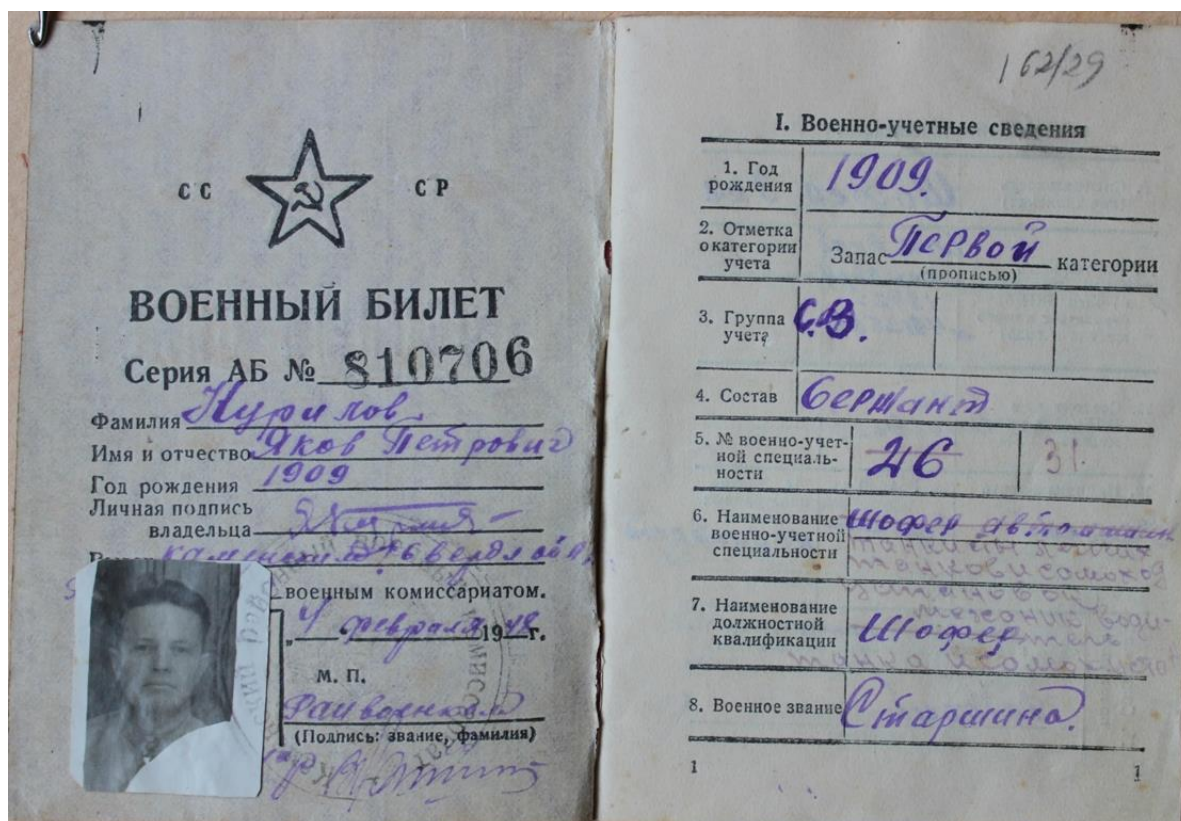 СС СР
ВОЕННЫЙ БИЛЕТ
Серия АБ № 810706
Фамилия Курилов
Имя и отчество Яков Петрович
Год рождения 1909
Личная подпись
владельца
Каменским Свердл обл.
военным комиссариатом.
„4 февраля 1948 г.
М. П.
Райвоенком
(Подпись: звание, фамилия)
162/29
I. Военно-учетные сведения
1. Год
рождения
1909.
2. Отметка
о категории
учета
Запас Первой категории
(прописью)
3. Группа
учета
С.В.
4. Состав
Сержант
5. № военно-учет-
ной специаль-
ности
26
31.
6. Наименование
военно-учетной
специальности
Шофер автомашин
танков и самоход
установок
7. Наименование
должностной
квалификации
Шофер
механик води-
тель
танка и самоход
8. Военное звание
Старшина.
1
1